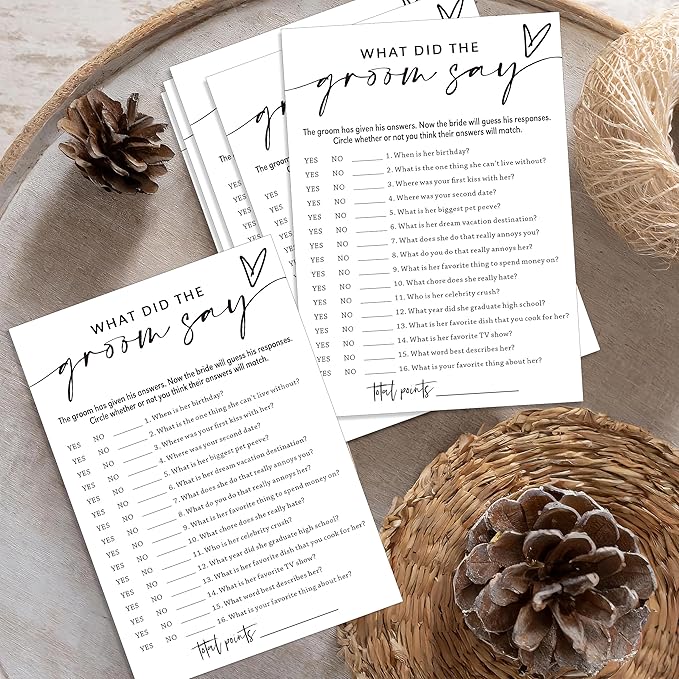 WHAT DID THE
groom say
The groom has given his answers. Now the bride will guess his responses.
Circle whether or not you think their answers will match.
YES NO ______ 1. When is her birthday?
YES NO ______ 2. What is the one thing she can't live without?
YES NO ______ 3. Where was your first kiss with her?
YES NO ______ 4. Where was your second date?
YES NO ______ 5. What is her biggest pet peeve?
YES NO ______ 6. What is her dream vacation destination?
YES NO ______ 7. What does she do that really annoys you?
YES NO ______ 8. What do you do that really annoys her?
YES NO ______ 9. What is her favorite thing to spend money on?
YES NO ______ 10. What chore does she really hate?
YES NO ______ 11. Who is her celebrity crush?
YES NO ______ 12. What year did she graduate high school?
YES NO ______ 13. What is her favorite dish that you cook for her?
YES NO ______ 14. What is her favorite TV show?
YES NO ______ 15. What word best describes her?
YES NO ______ 16. What is your favorite thing about her?
total points ______
WHAT DID THE
groom say
The groom has given his answers. Now the bride will guess his responses.
Circle whether or not you think their answers will match.
YES NO ______ 1. When is her birthday?
YES NO ______ 2. What is the one thing she can't live without?
YES NO ______ 3. Where was your first kiss with her?
YES NO ______ 4. Where was your second date?
YES NO ______ 5. What is her biggest pet peeve?
YES NO ______ 6. What is her dream vacation destination?
YES NO ______ 7. What does she do that really annoys you?
YES NO ______ 8. What do you do that really annoys her?
YES NO ______ 9. What is her favorite thing to spend money on?
YES NO ______ 10. What chore does she really hate?
YES NO ______ 11. Who is her celebrity crush?
YES NO ______ 12. What year did she graduate high school?
YES NO ______ 13. What is her favorite dish that you cook for her?
YES NO ______ 14. What is her favorite TV show?
YES NO ______ 15. What word best describes her?
YES NO ______ 16. What is your favorite thing about her?
total points ______